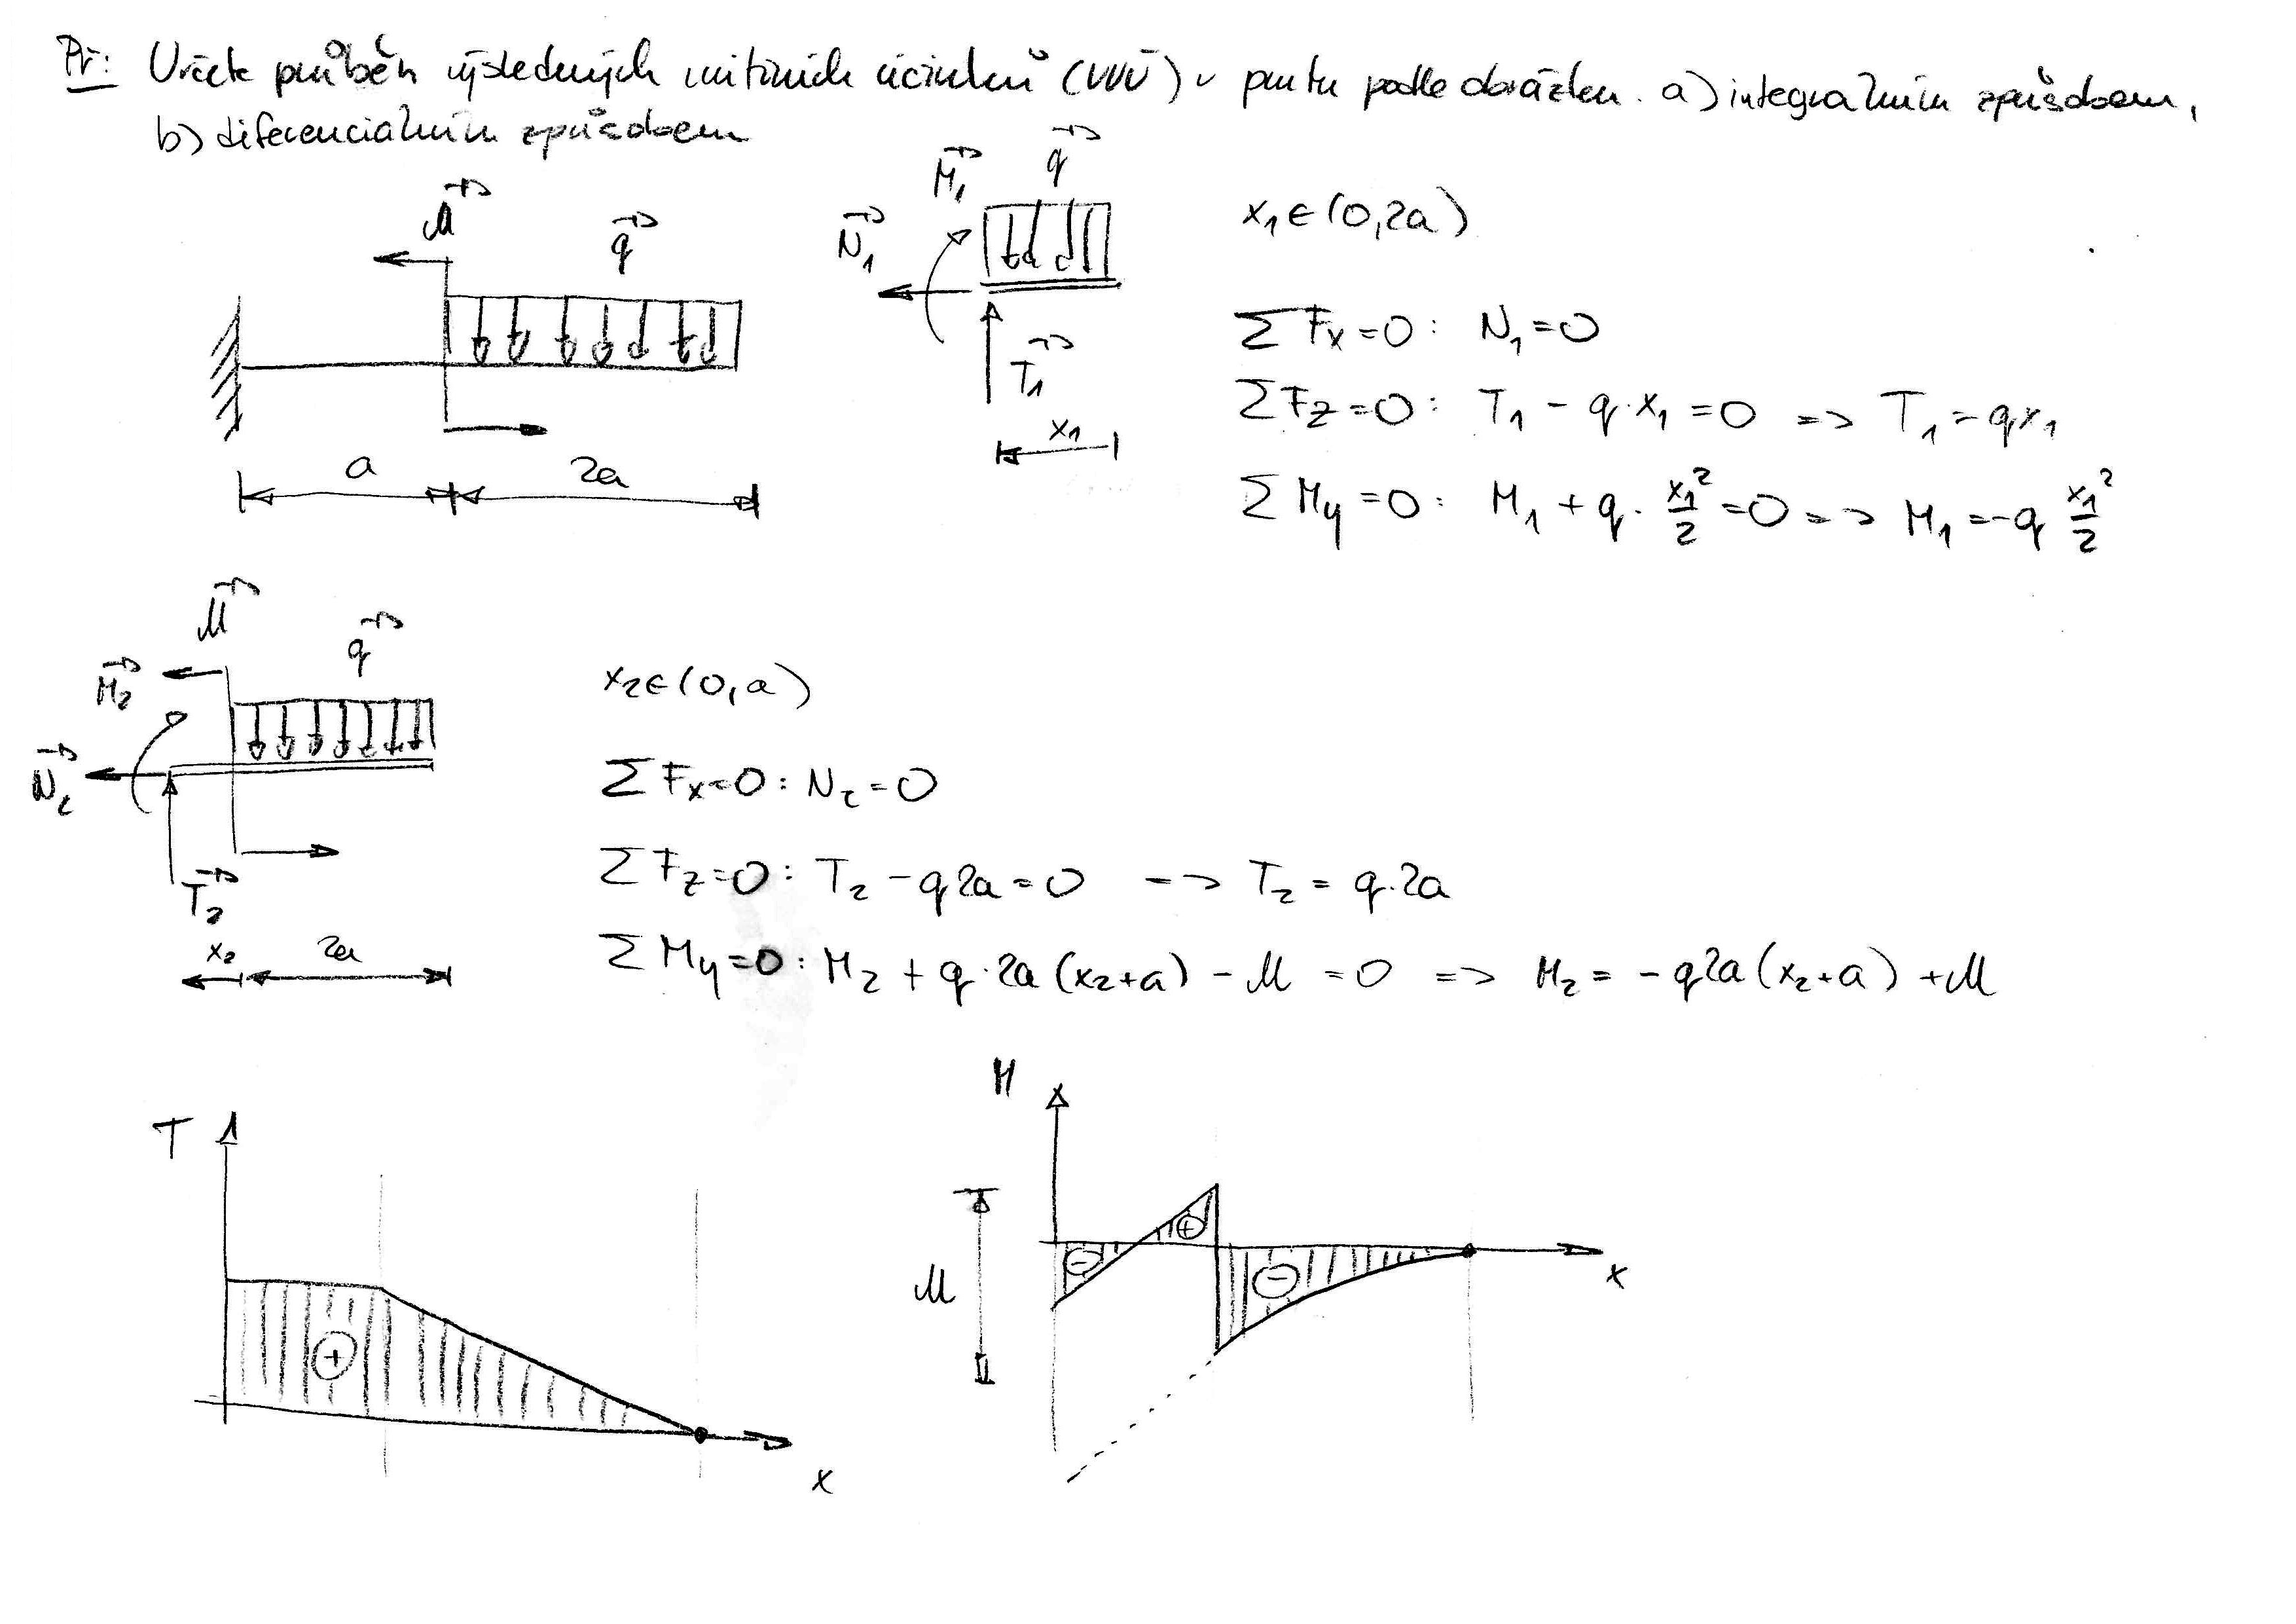 Př: Určete průběh výsledných vnitřních účinků (VVÚ) v prutu podle obrázku. a) integrálním způsobem,
b) diferenciálním způsobem
M q
a 2a
N₁ M₁ q
T₁
x₁
x₁∈(0,2a)
ΣFx=0: N₁=0
ΣFz=0: T₁ - q·x₁ = 0 => T₁ = qx₁
ΣMy=0: M₁ + q·x₁²/2 = 0 => M₁ = -q x₁²/2
M q
M₂
N₂
T₂
x₂ 2a
x₂∈(0,a)
ΣFx=0: N₂=0
ΣFz=0: T₂ - q2a = 0 -> T₂ = q·2a
ΣMy=0: M₂ + q·2a(x₂+a) - M = 0 => M₂ = -q2a(x₂+a) + M
T
+
x
M
M
- + -
x